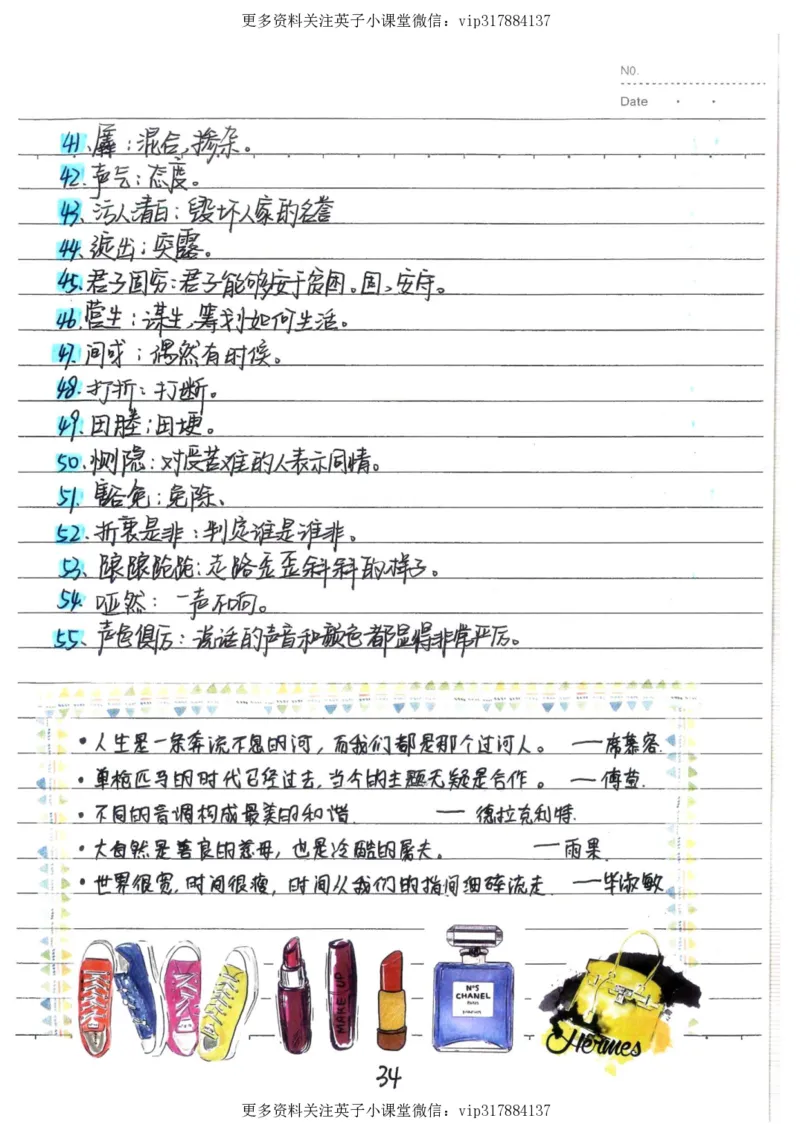 更多资料关注英子小课堂微信：vip317884137
NO.
Date
41、羼：混合，掺杂。
42.声气：态度。
43、污人清白：毁坏人家的名誉
44、绽出：突露。
45、君子固穷：君子能够安于贫困。固，安守。
46.营生：谋生，筹划如何生活。
47.间或：偶然有时候。
48.打折：打断。
49.田塍：田埂。
50.恻隐：对受苦难的人表示同情。
51.豁免：免除、
52.折衷是非：判定谁是谁非。
53、踉踉跄跄：走路歪歪斜斜的样子。
54.哑然：一声不响。
55、声色俱厉：说话的声音和颜色都显得非常严厉。
·人生是一条奔流不息的河，而我们都是那个过河人。 —席慕容.
·单枪匹马的时代已经过去,当今的主题无疑是合作。 —傅莹.
·不同的音调构成最美的和谐. — 德拉克利特.
·大自然是善良的慈母，也是冷酷的屠夫。 —雨果.
·世界很宽,时间很瘦，时间从我们的指间细碎流走. —毕淑敏
MAKE UP
N°5
CHANEL
PARIS
PARFUM
Hermes
34
更多资料关注英子小课堂微信：vip317884137